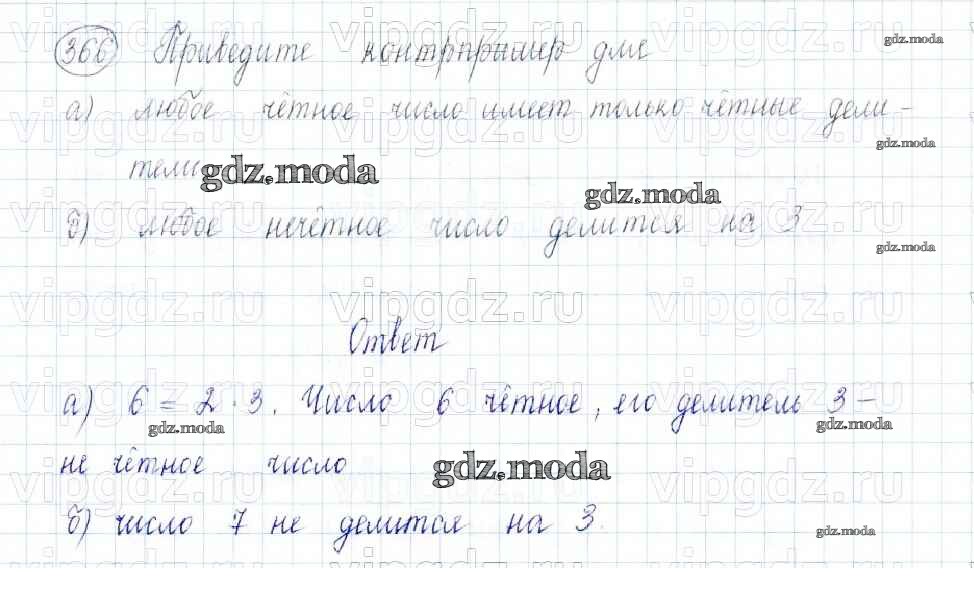 366 Приведите контрпример для
а) любое чётное число имеет только чётные дели-
тели
б) любое нечётное число делится на 3
Ответ
а) 6 = 2 · 3. Число 6 чётное, его делитель 3 -
не чётное число
б) число 7 не делится на 3.
gdz.moda
vipgdz.ru